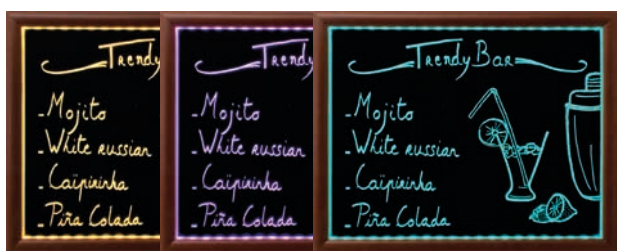 Trendy
- Mojito
- White russian
- Caïpirinha
- Piña Colada
Trendy
- Mojito
- White russian
- Caïpirinha
- Piña Colada
Trendy Bar
- Mojito
- White russian
- Caïpirinha
- Piña Colada